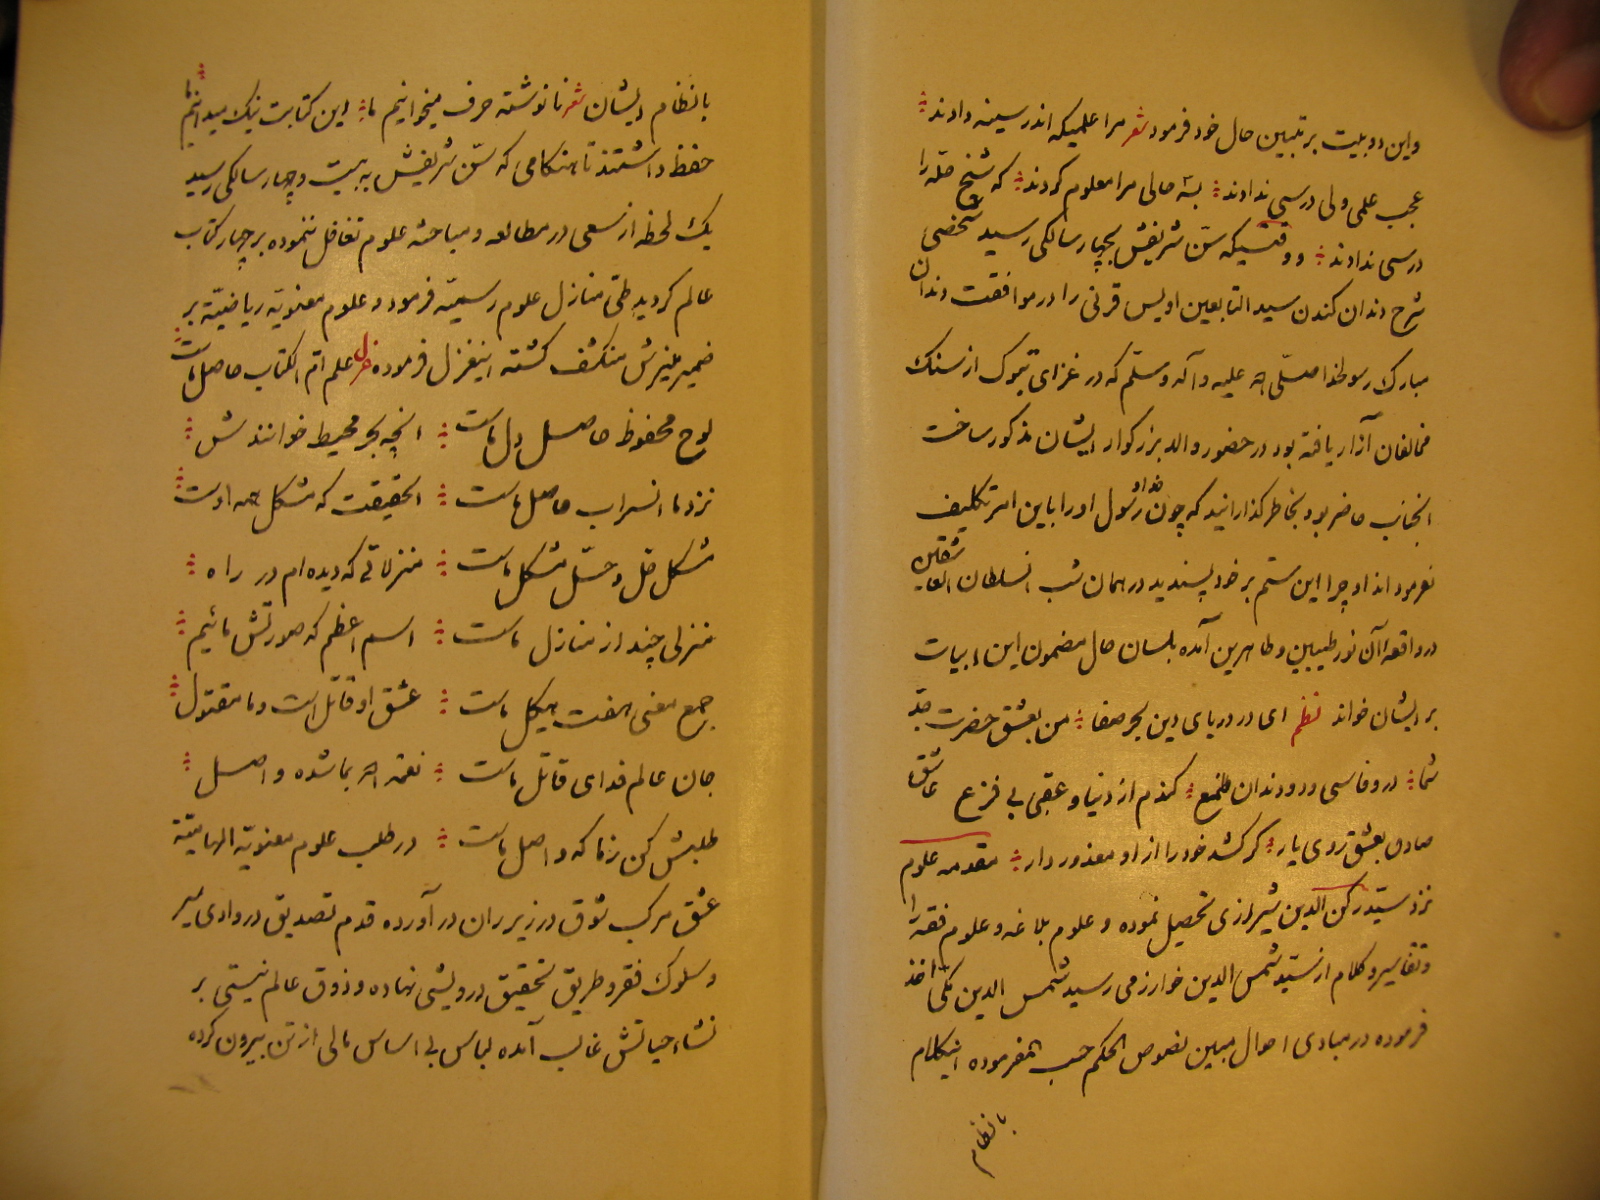 و این دو بیت بر تبیین حال خود فرمود شعر مرا علمیکه اندر سینه دادند
عجب علمی ولی درسی ندادند بسه حالی مرا معلوم کردند که شیخ چله را
درسی ندادند و وقتیکه سن شریفش بچهار سالکی رسید شخصی
شرح دندان کندن سید التابعین اویس قرنی را در موافقت دندان
مبارک رسولخدا صلی الله علیه و آله و سلم که در غزای تبوک از سنک
مخالفان آزار یافته بود در حضور والد بزرکوار ایشان مذکور ساخت
انجناب حاضر بود بخاطر کذارانید که چون خدا و رسول او را باین امر تکلیف
نفرموده اند او چرا این ستم بر خود پسندید در همان شب انسلطان العاشقین
در واقعه آن نور طیبین و طاهرین آمده بلسان حال مضمون این ابیات
بر ایشان خواند نظم ای در دریای دین بحر صفا من بعشق حضرت جد
شما در وفا سی و دو دندان طمع کندم از دنیا و عقبی بی فزع عاشق
صادق بعشق روی یار کر کشد خود را از او معذور دار مقدمه علوم
نزد سید رکن الدین شیرازی تحصیل نموده و علوم بلاغه و علوم فقه را
و تفاسیر و کلام از سید شمس الدین خوارزمی و سید شمس الدین مکی اخذ
فرموده در مبادی احوال مبین نصوص الحکم حسب المفرموده اینکلام
بانظام
بانظام ایشان شعر نانوشته حرف میخوانیم ما این کتابت نیک میدانیم ما
حفظ داشتند تا هنکامی که سن شریفش به بیست و چهار سالکی رسید
یک لحظه از سعی در مطالعه و مباحثه علوم تغافل ننموده بر چهار کتاب
عالم کردید طی منازل علوم رسمیه فرمود و علوم معنویه ریاضیه بر
ضمیر منیرش منکشف کشته اینغزل فرموده غزل علم ام الکتاب حاصل ماست
لوح محفوظ حاصل دل ماست انچه بحر محیط خوانندش
نزد ما انسراب حاصل ماست الحقیقت که مشکل همه اوست
مشکل حل و حل مشکل ماست منزلاتی که دیده ام در راه
منزلی چند از منازل ماست اسم اعظم که صورتش مائیم
جمع معنی هفت هیکل ماست عشق او قاتل است و ما مقتول
جان عالم فدای قاتل ماست نعمه الله بما شده واصل
طلبش کن زما که واصل ماست در طلب علوم معنویه الهامیته
عشق مرکب شوق در زیر ران در آورده قدم تصدیق در وادی سیر
و سلوک فقر و طریق تحقیق درویشی نهاده و ذوق عالم نیستی بر
نشاء حیاتش غالب آمده لباس بی اساس مالی از تن بیرون کرده